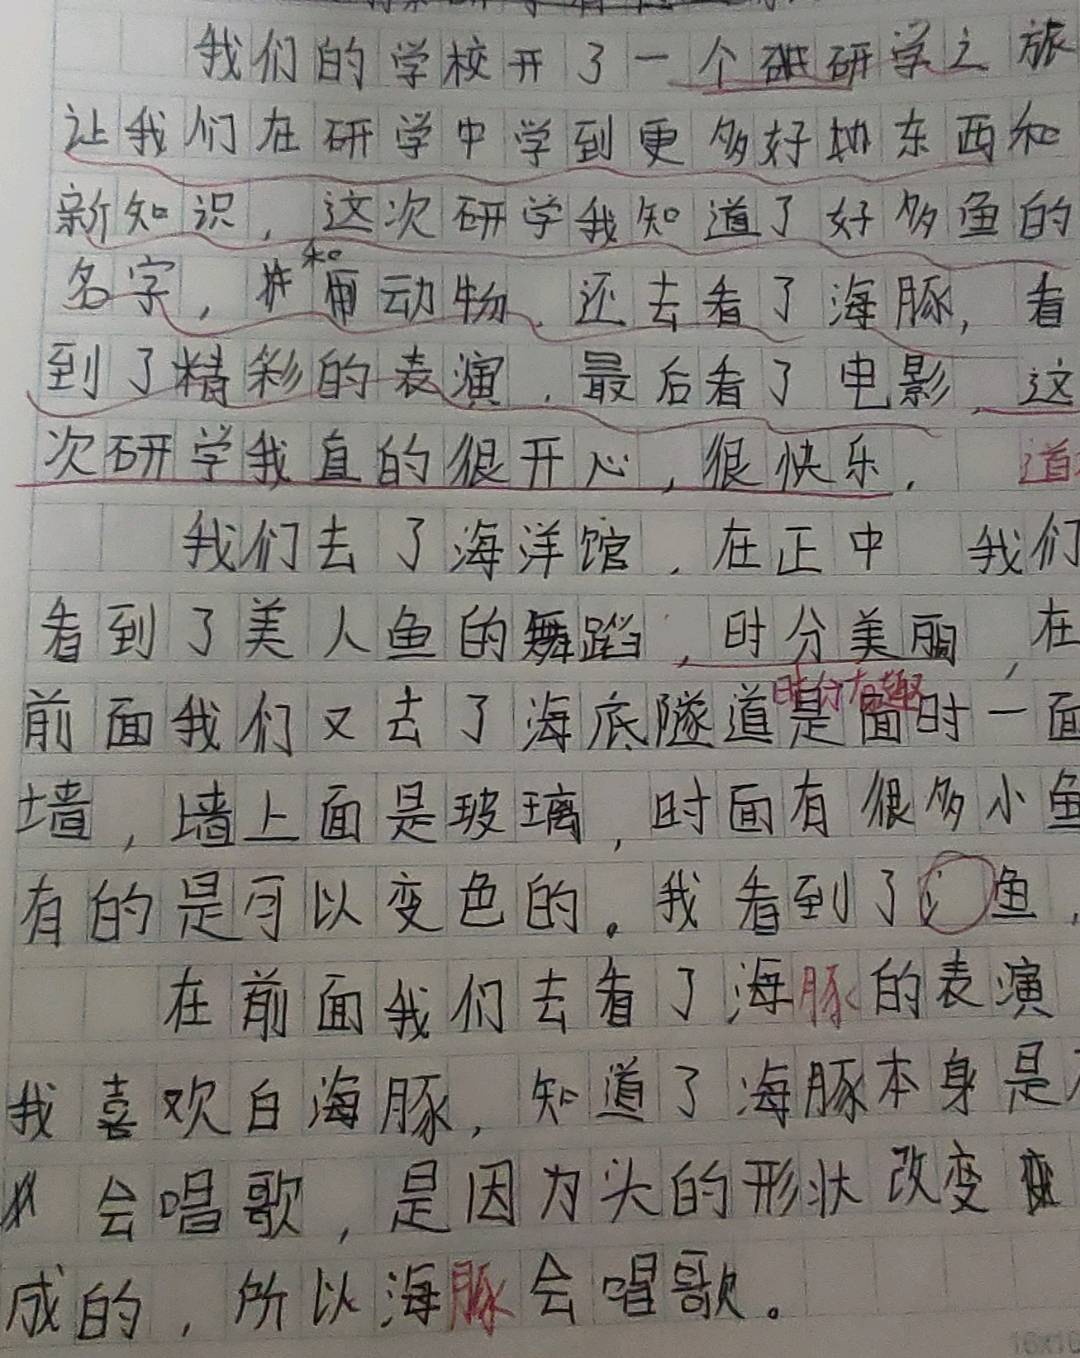 我们的学校开了一个研学之旅
让我们在研学中学到更多好地东西和
新知识，这次研学我知道了好多鱼的
名字，和动物，还去看了海豚，看
到了精彩的表演，最后看了电影，这
次研学我直的很开心，很快乐，道
我们去了海洋馆，在正中 我们
看到了美人鱼的舞蹈，时分美丽，在
时分有趣
前面我们又去了海底隧道是面时一面
墙，墙上面是玻璃，时面有很多小鱼
有的是可以变色的。我看到了鱼，
在前面我们去看了海豚的表演
我喜欢白海豚，知道了海豚本身是
会唱歌，是因为头的形状改变
成的，所以海豚会唱歌。